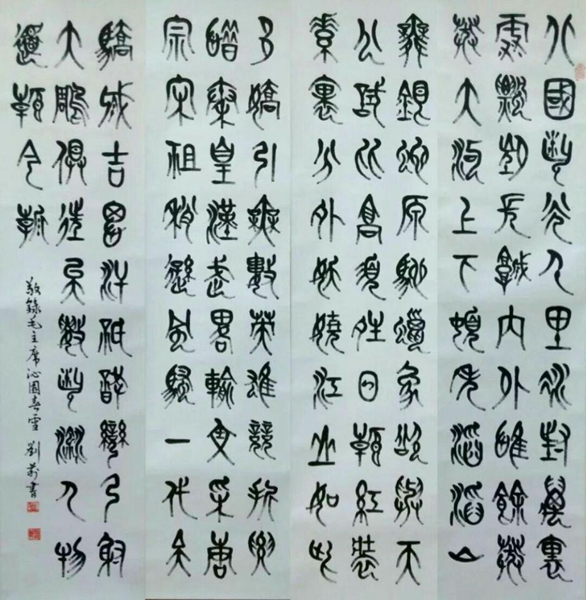 北國風光千里冰封萬裏
雪飄望長城內外惟餘莽
莽大河上下頓失滔滔山
舞銀蛇原馳蠟象欲與天
公試比高須晴日看紅裝
素裹分外妖嬈江山如此
多嬌引無數英雄競折腰
惜秦皇漢武略輸文采唐
宗宋祖稍遜風騷一代天
驕成吉思汗祗識彎弓射
大雕俱往矣數風流人物
還看今朝
敬錄毛主席沁園春雪 劉書